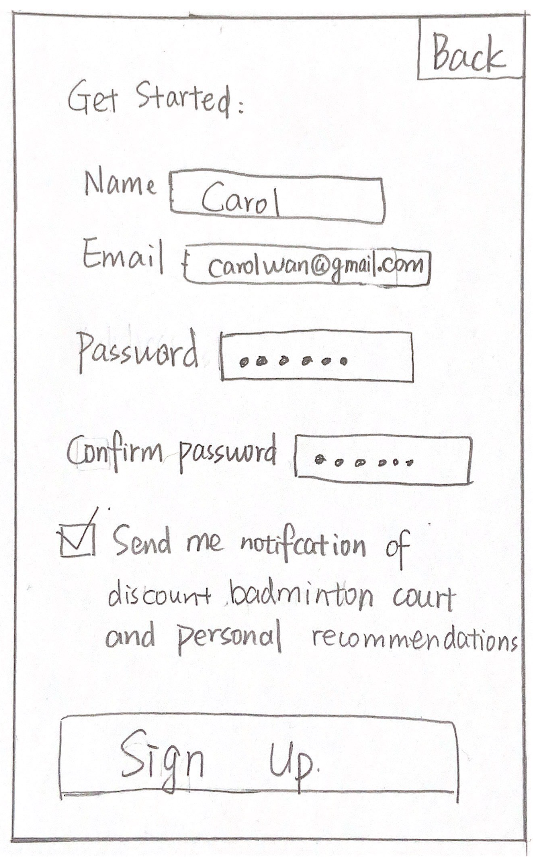 Back
Get Started:
Name Carol
Email carolwan@gmail.com
Password ••••••
Confirm password ••••••
Send me notifcation of
discount badminton court
and personal recommendations
Sign Up.